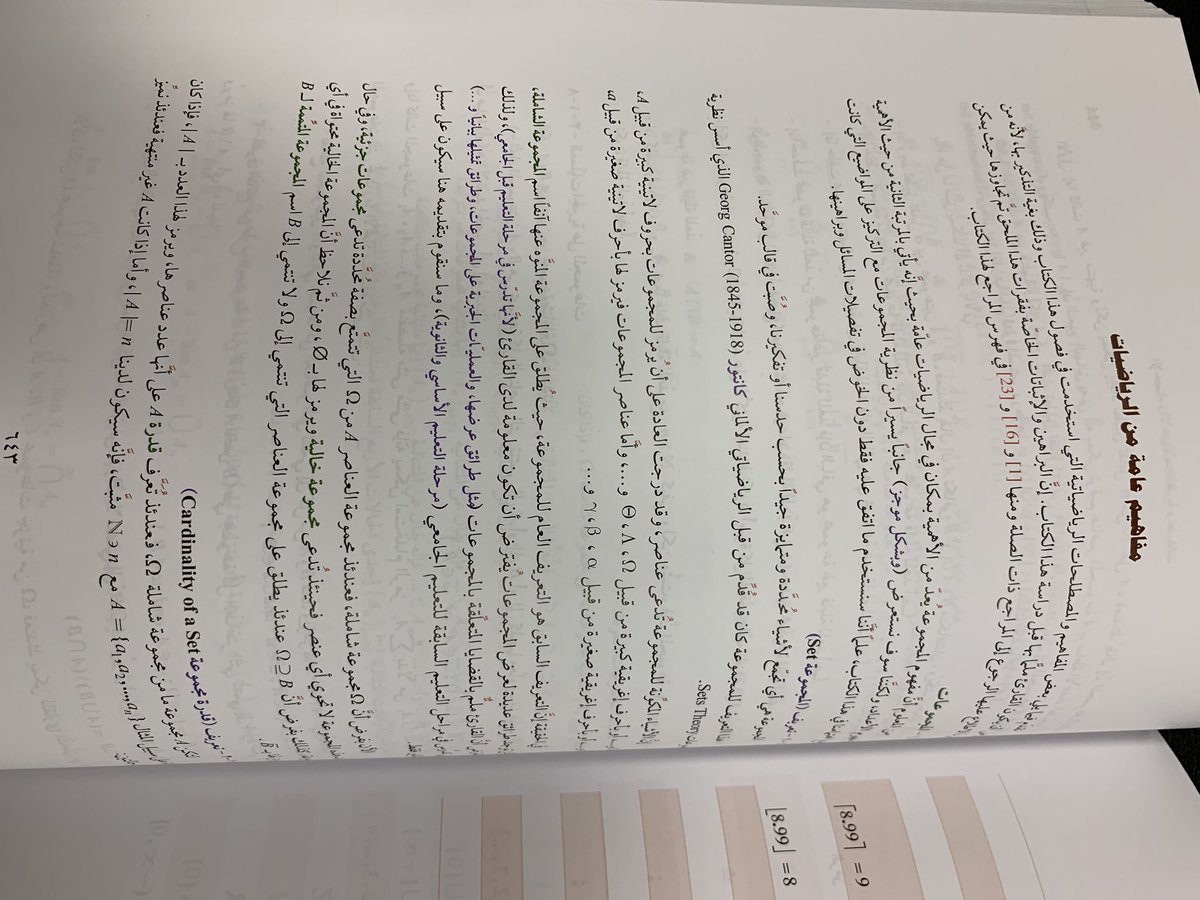 مفاهيم عامة من الرياضيات
يلي بعض المفاهيم والمصطلحات الرياضياتية التي استخدمت في فصول هذا الكتاب وذلك بغية التذكير بها، لأنّه من
يكون القارئ ملمّاً بها قبل دراسة هذا الكتاب. إنّ البراهين والإثباتات الخاصّة بفقرات هذا اللحق تمّ تجاوزها حيث يمكن
عليها الرجوع إلى المراجع ذات الصلة ومنها [1] و [16] و [23] في فهرس المراجع لهذا الكتاب.
أنّ مفهوم المجموعة يُعدّ من الأهمية بمكان في مجال الرياضيات عامّة بحيث إنّه يأتي بالمرتبة الثانية من حيث الأهمية
الأعداد، ولكنّنا سوف نستعرض (وبشكل موجز) جانباً يسيراً من نظرية المجموعات مع التركيز على المواضع التي كانت
في هذا الكتاب، علماً أنّنا سنستخدم ما اتفق عليه فقط دون الخوض في تفصيلات المسائل وبراهينها.
تعريف (المجموعة Set)
هي أيّ تجمّع لأشياء مُحدَّدة ومتمايزة جيداً بحسب حدسنا أو تفكيرنا، وصُبّت في قالب موحّد.
هذا التعريف للمجموعة كان قد قُدّم من قبل الرياضياتي الألماني كانتور Georg Cantor (1845-1918) الذي أسس نظرية
Sets Theory.
الأشياء المكوّنة للمجموعة تُدعى عناصر، وقد درجت العادة على أن يُرمز للمجموعات بحروف لاتينية كبيرة من قبيل A،
أو بأحرف إغريقية كبيرة من قبيل Ω، Λ، Θ و...، وأمّا عناصر المجموعات فيرمز لها بأحرف لاتينية صغيرة من قبيل a،
أو بأحرف إغريقية صغيرة من قبيل α، β، γ و....
في الحقيقة إنّ التعريف السابق هو التعريف العام للمجموعة، حيث يُطلق على المجموعة المنوّه عنها آنفاً اسم المجموعة الشاملة،
طرائق عديدة لعرض المجموعات يُفترض أن تكون معلومة لدى القارئ (لأنّها تدرس في مرحلة التعليم قبل الجامعي)، ولذلك
أنّ القارئ مُلمٌّ بالقضايا المتعلّقة بالمجموعات (مثل طرائق عرضها، والعمليات الجبرية على المجموعات، وطرائق تمثيلها بيانياً و...)
في مراحل التعليم السابقة للتعليم الجامعي (مرحلة التعليم الأساسي والثانوية)، وما سنقوم بتقديمه هنا سيكون على سبيل
الآن بفرض أنّ Ω مجموعة شاملة، فعندئذ مجموعة العناصر A من Ω التي تتمتّع بصفة مُحدَّدة تدعى مجموعات جزئية، وفي حال
المجموعة لا تحوي أي عنصر فحينئذٍ تُدعى مجموعة خالية ويرمز لها بـ Ø، ومن ثمّ نلاحظ أنّ المجموعة الخالية محتواة في أي
كذلك بفرض أنّ Ω ⊇ B عندئذ يطلق على مجموعة العناصر التي تنتمي إلى Ω ولا تنتمي إلى B اسم المجموعة المتمّمة لـ B
تعريف (قدرة مجموعة Cardinality of a Set)
لتكن A مجموعة ما من مجموعة شاملة Ω، فعندئذ تُعرَّف قدرة A على أنّها عدد عناصرها، ويرمز لهذا العدد بـ |A|، فإذا كان
سبيل المثال A = {a₁, a₂, ..., aₙ} مع N ∋ n مثبّت، فإنّه سيكون لدينا |A| = n، وأما إذا كانت A غير منتهية فعندئذ نميّز
٦٤٣
⌈8.99⌉ = 9
⌊8.99⌋ = 8